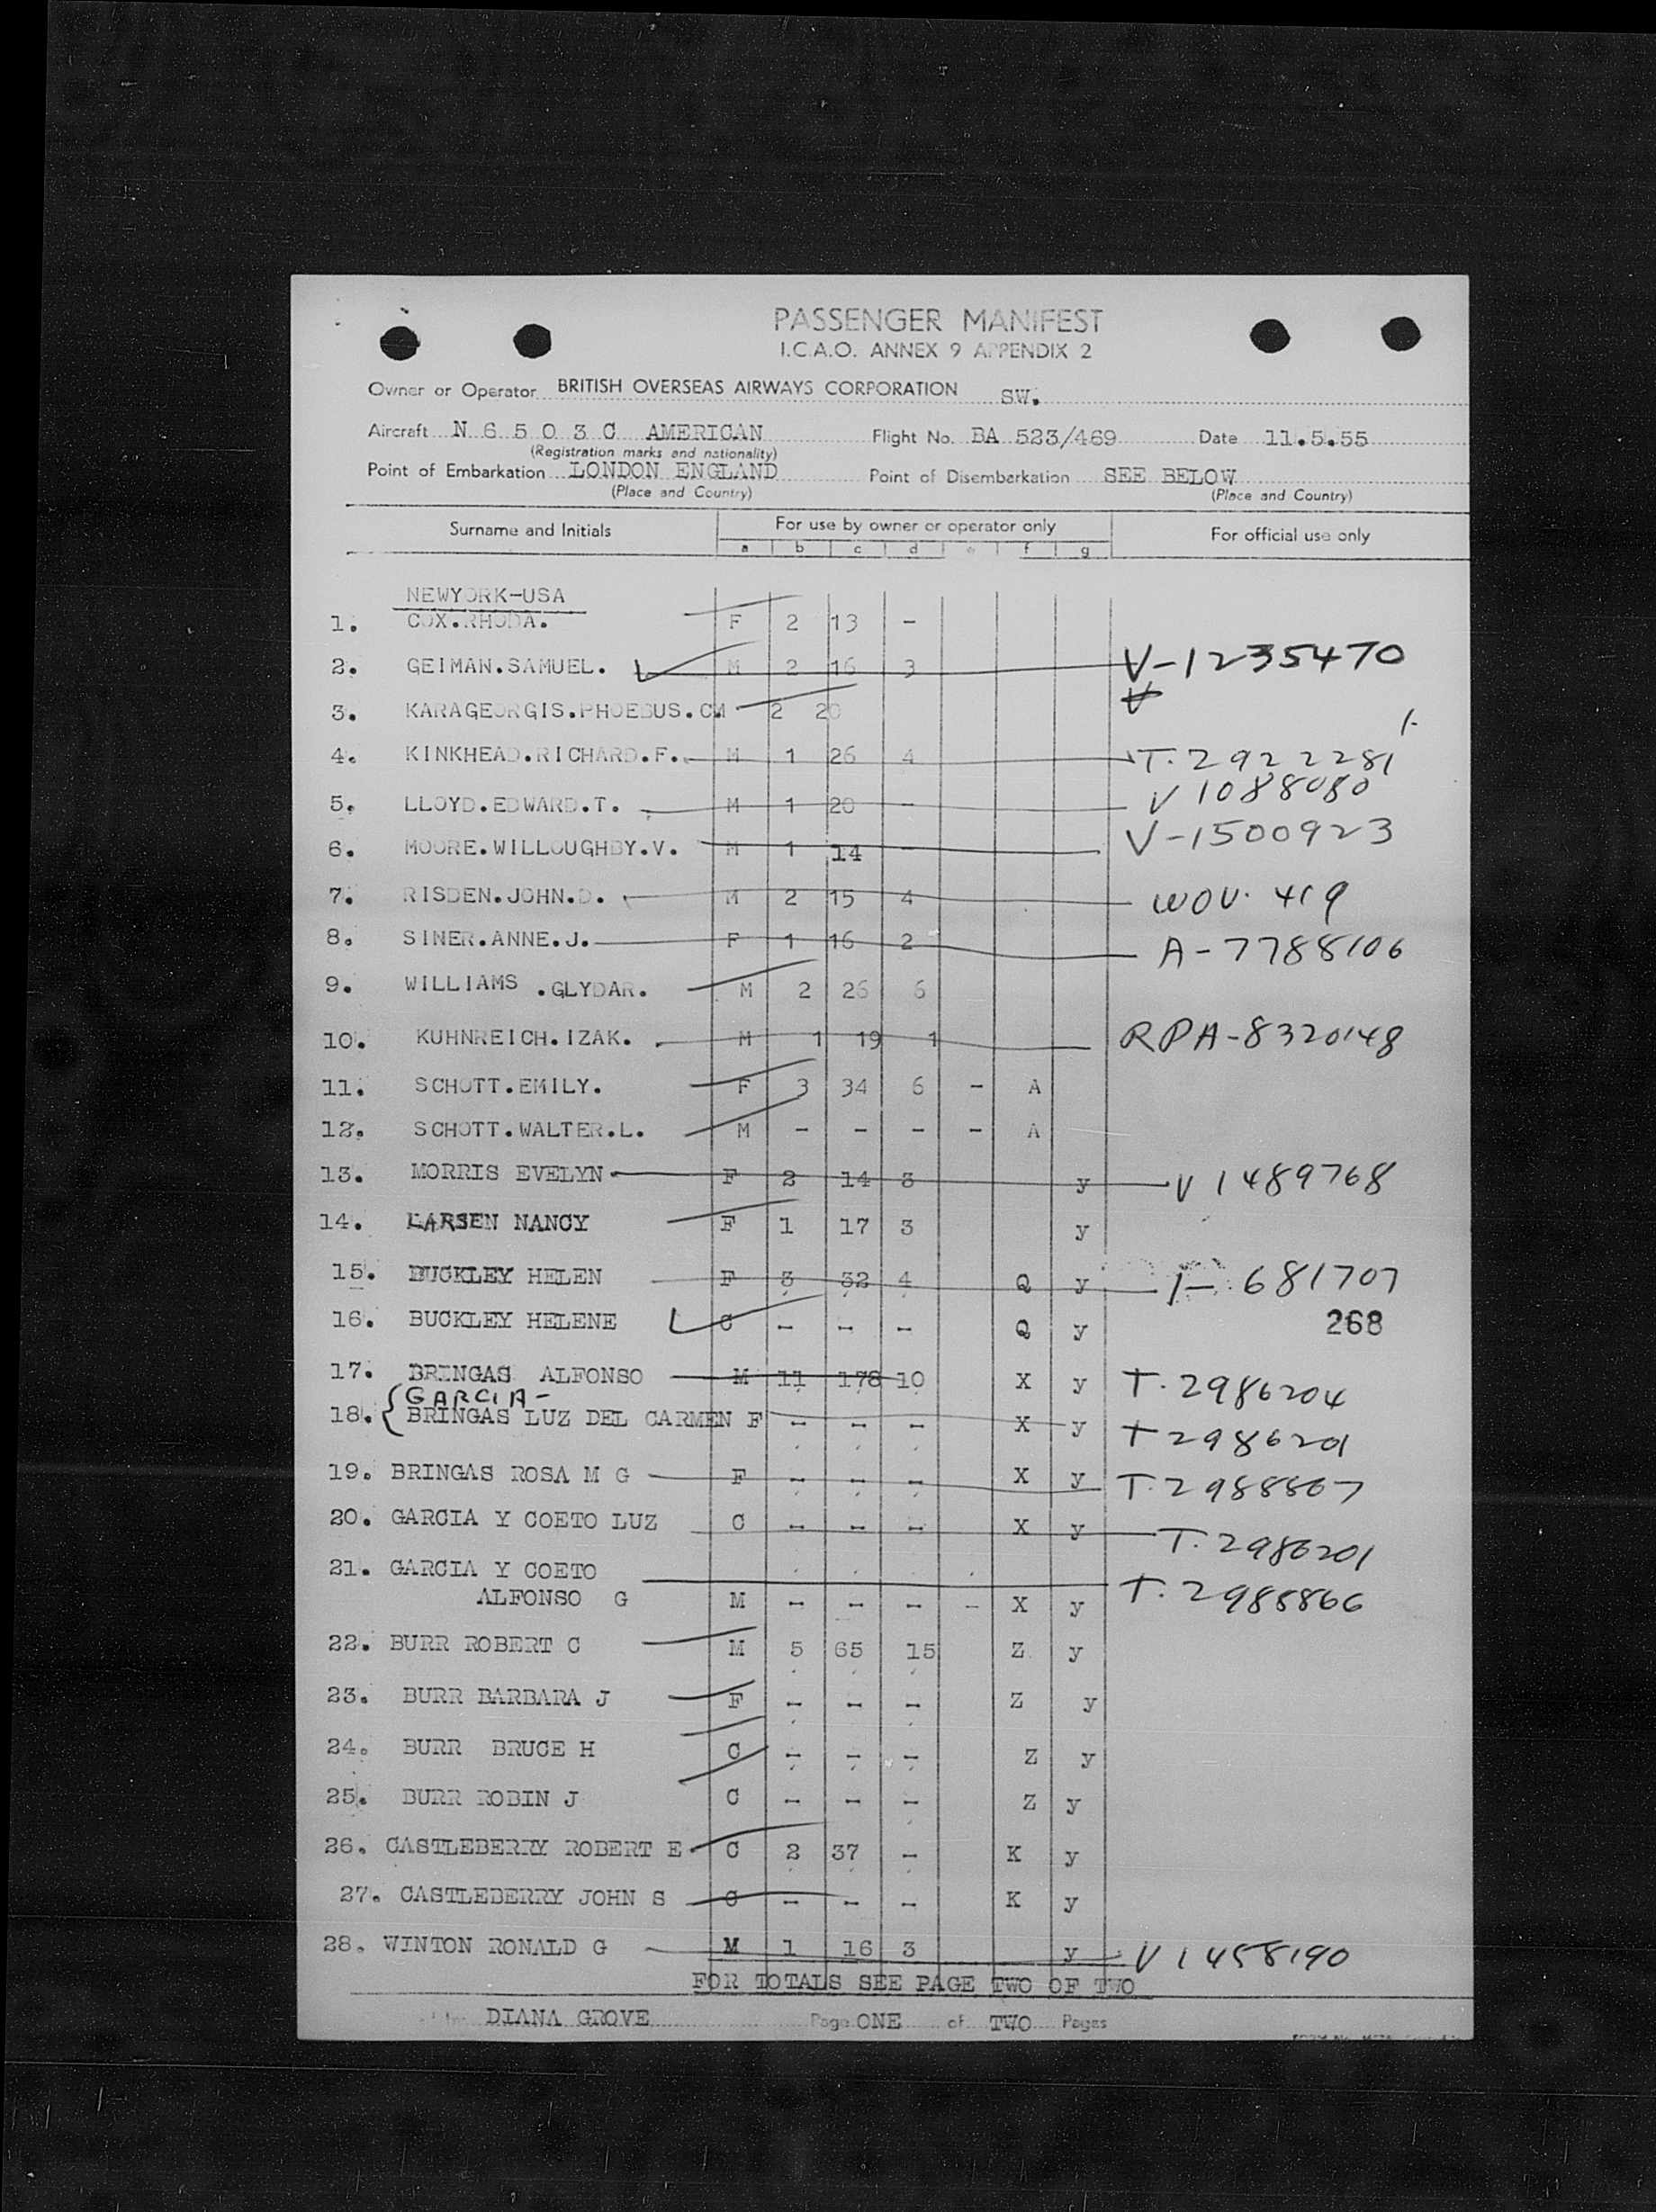 PASSENGER MANIFEST
I.C.A.O. ANNEX 9 APPENDIX 2
Owner or Operator BRITISH OVERSEAS AIRWAYS CORPORATION SW.
Aircraft N 6 5 0 3 C AMERICAN Flight No. BA 523/469 Date 11.5.55
(Registration marks and nationality)
Point of Embarkation LONDON ENGLAND Point of Disembarkation SEE BELOW
(Place and Country) (Place and Country)
Surname and Initials For use by owner or operator only For official use only
a b c d e f g
NEWYORK-USA
1. COX.RHODA. F 2 13 -
2. GEIMAN.SAMUEL. M 2 16 3 V-1235470
V
3. KARAGEORGIS.PHOEBUS.CM 2 20
4. KINKHEAD.RICHARD.F. M 1 26 4 T.2922281
5. LLOYD.EDWARD.T. M 1 20 - V 1088080
6. MOORE.WILLOUGHBY.V. M 1 14 - V-1500923
7. RISDEN.JOHN.D. M 2 15 4 WOV. 419
8. SINER.ANNE.J. F 1 16 2 A-7788106
9. WILLIAMS .GLYDAR. M 2 26 6
10. KUHNREICH.IZAK. M 1 19 1 RPA-8320148
11. SCHOTT.EMILY. F 3 34 6 - A
12. SCHOTT.WALTER.L. M - - - - A
13. MORRIS EVELYN F 2 14 3 y V 1489768
14. LARSEN NANCY F 1 17 3 y
15. BUCKLEY HELEN F 3 32 4 Q y 1-681707
16. BUCKLEY HELENE C - - - Q y 268
17. BRINGAS ALFONSO M 11 178 10 X y T.2986204
GARCIA-
18. BRINGAS LUZ DEL CARMEN F - - - X y T2986201
19. BRINGAS ROSA M G F - - - X y T.2988867
20. GARCIA Y COETO LUZ C - - - X y T.2986201
21. GARCIA Y COETO
ALFONSO G M - - - - X y T.2988866
22. BURR ROBERT C M 5 65 15 Z y
23. BURR BARBARA J F - - - Z y
24. BURR BRUCE H C - - - Z y
25. BURR ROBIN J C - - - Z y
26. CASTLEBERRY ROBERT E C 2 37 - K y
27. CASTLEBERRY JOHN S C - - - K y
28. WINTON RONALD G M 1 16 3 y V 1458190
FOR TOTALS SEE PAGE TWO OF TWO
DIANA GROVE Page ONE of TWO Pages